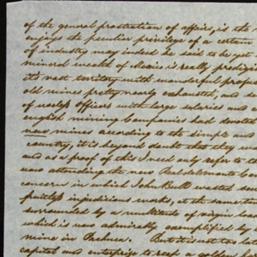 of the general prostration of affairs, is the
enjoys the peculiar privilege of a certain
of industry may indeed be said to be yet
mineral wealth of Mexico is really prodigi
its vast territory with wonderful profus
old mines pretty nearly exhausted, and a
of useless Officers with large salaries and
English mining Companies had devoted
new mines according to the simple and
country, it is beyond doubt that they w
and as a proof of this I need only refer to t
now attending the new Real del monte Co
concern in which John Bull wasted som
fruitless injudicious works, at the same tim
surrounded by a multitude of virgin
which is now admirably exemplified by
mine in Pachuca. But it is not too late
capital and enterprise to reap a golden